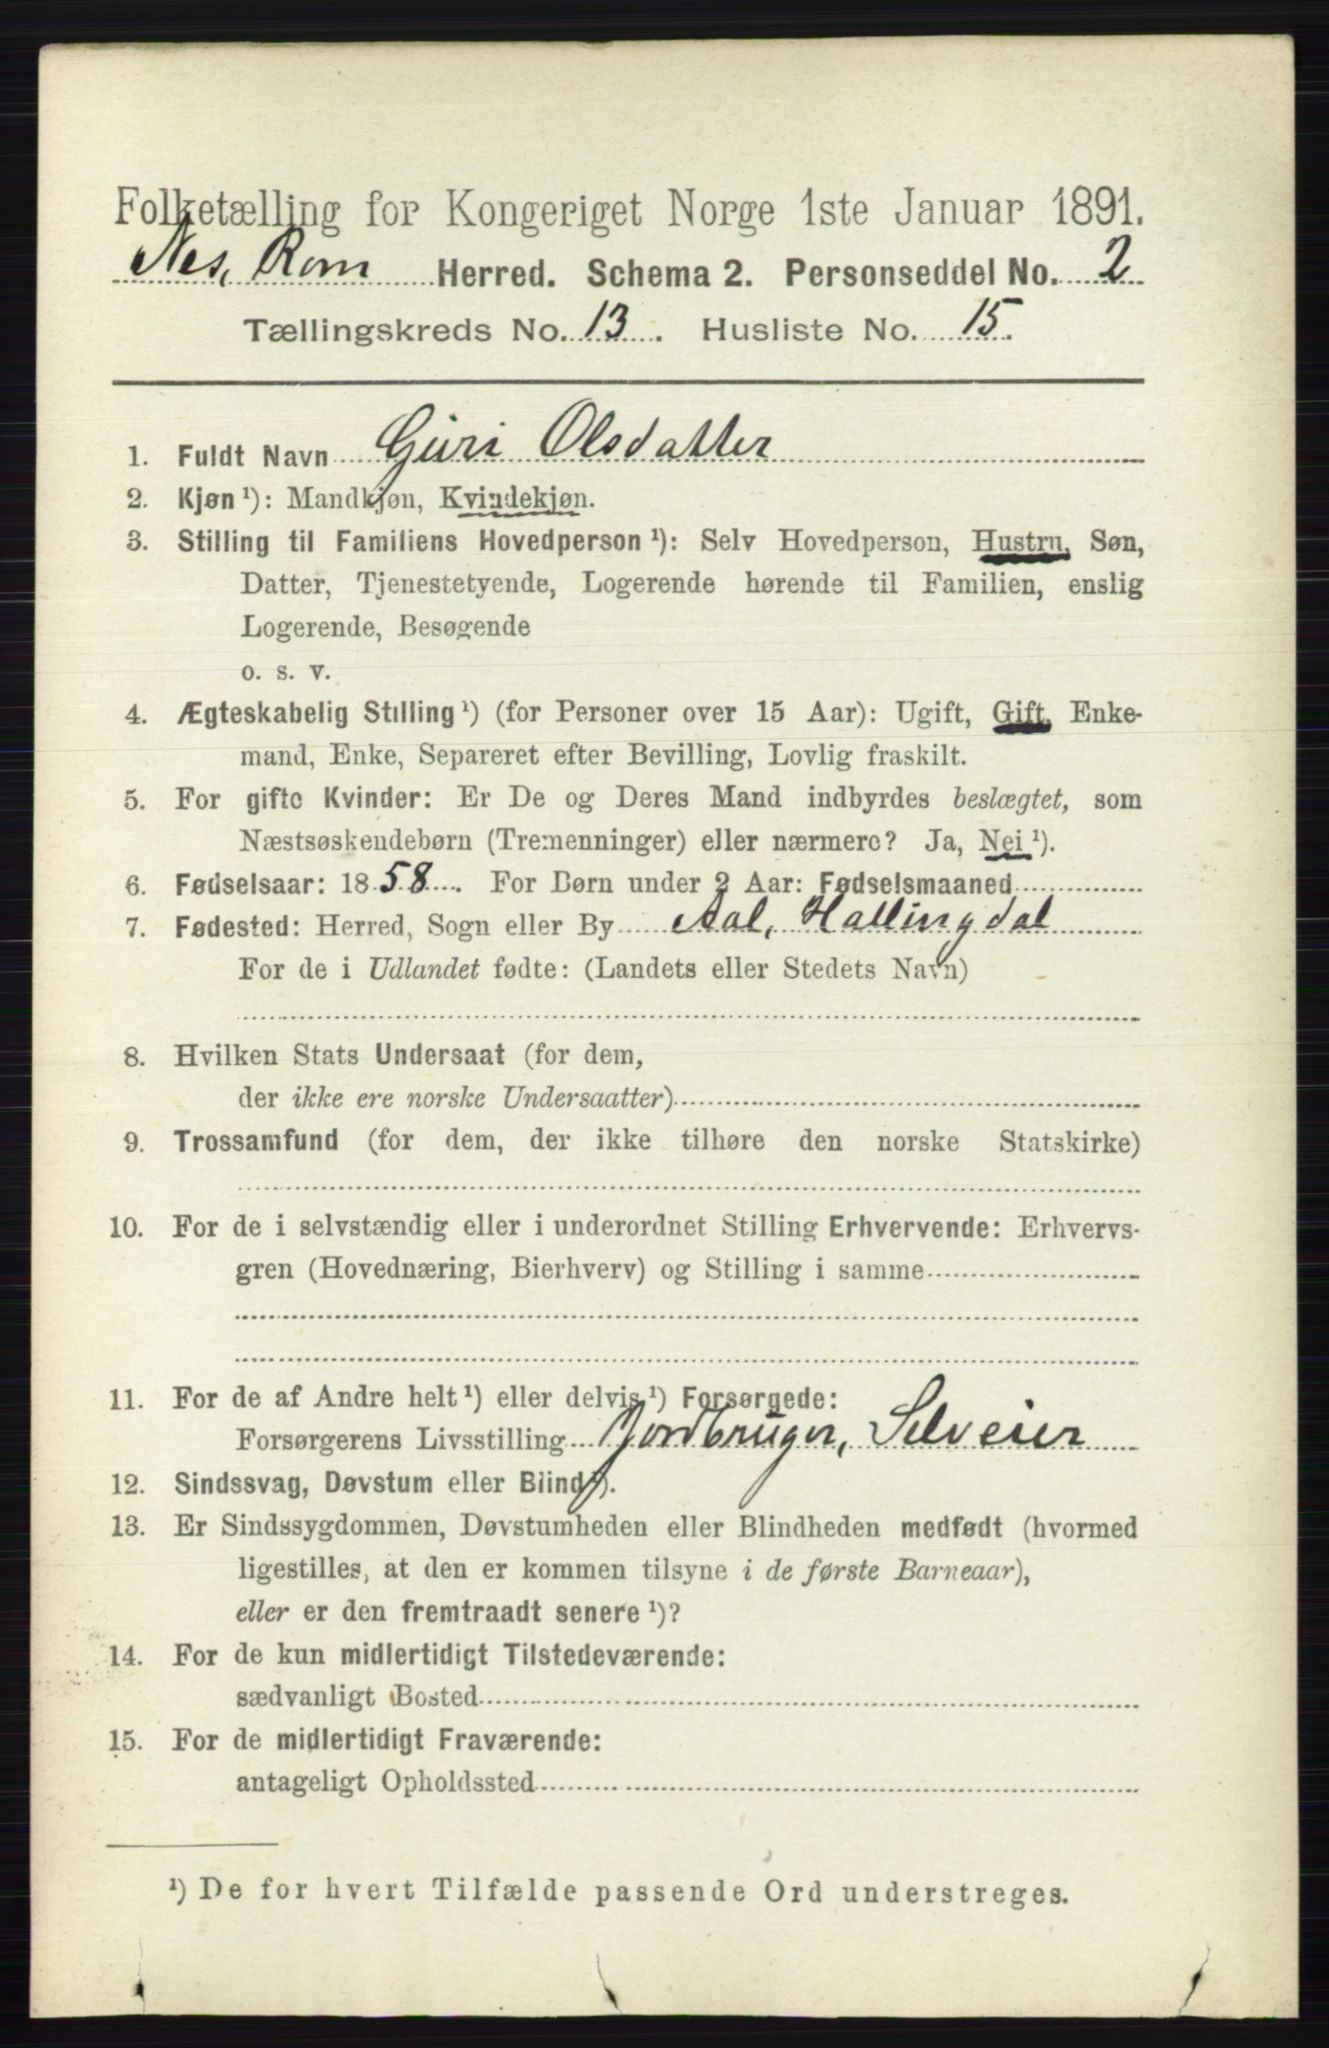 Folketælling for Kongeriget Norge 1ste Januar 1891.
Nes, Rom Herred. Schema 2. Personseddel No. 2
Tællingskreds No. 13. Husliste No. 15.
1. Fuldt Navn Guri Olsdatter
2. Kjøn ¹): Mandkjøn, Kvindekjøn.
3. Stilling til Familiens Hovedperson ¹): Selv Hovedperson, Hustru, Søn,
Datter, Tjenestetyende, Logerende hørende til Familien, enslig
Logerende, Besøgende
o. s. v.
4. Ægteskabelig Stilling ¹) (for Personer over 15 Aar): Ugift, Gift, Enke-
mand, Enke, Separeret efter Bevilling, Lovlig fraskilt.
5. For gifte Kvinder: Er De og Deres Mand indbyrdes beslægtet, som
Næstsøskendebørn (Tremenninger) eller nærmere? Ja, Nei ¹).
6. Fødselsaar: 1858. For Børn under 2 Aar: Fødselsmaaned
7. Fødested: Herred, Sogn eller By Aal, Hallingdal
For de i Udlandet fødte: (Landets eller Stedets Navn)
8. Hvilken Stats Undersaat (for dem,
der ikke ere norske Undersaatter)
9. Trossamfund (for dem, der ikke tilhøre den norske Statskirke)
10. For de i selvstændig eller i underordnet Stilling Erhvervende: Erhvervs-
gren (Hovednæring, Bierhverv) og Stilling i samme
11. For de af Andre helt ¹) eller delvis ¹) Forsørgede:
Forsørgerens Livsstilling Jordbruger, Selveier
12. Sindssvag, Døvstum eller Blind ¹).
13. Er Sindssygdommen, Døvstumheden eller Blindheden medfødt (hvormed
ligestilles, at den er kommen tilsyne i de første Barneaar),
eller er den fremtraadt senere ¹)?
14. For de kun midlertidigt Tilstedeværende:
sædvanligt Bosted
15. For de midlertidigt Fraværende:
antageligt Opholdssted
¹) De for hvert Tilfælde passende Ord understreges.